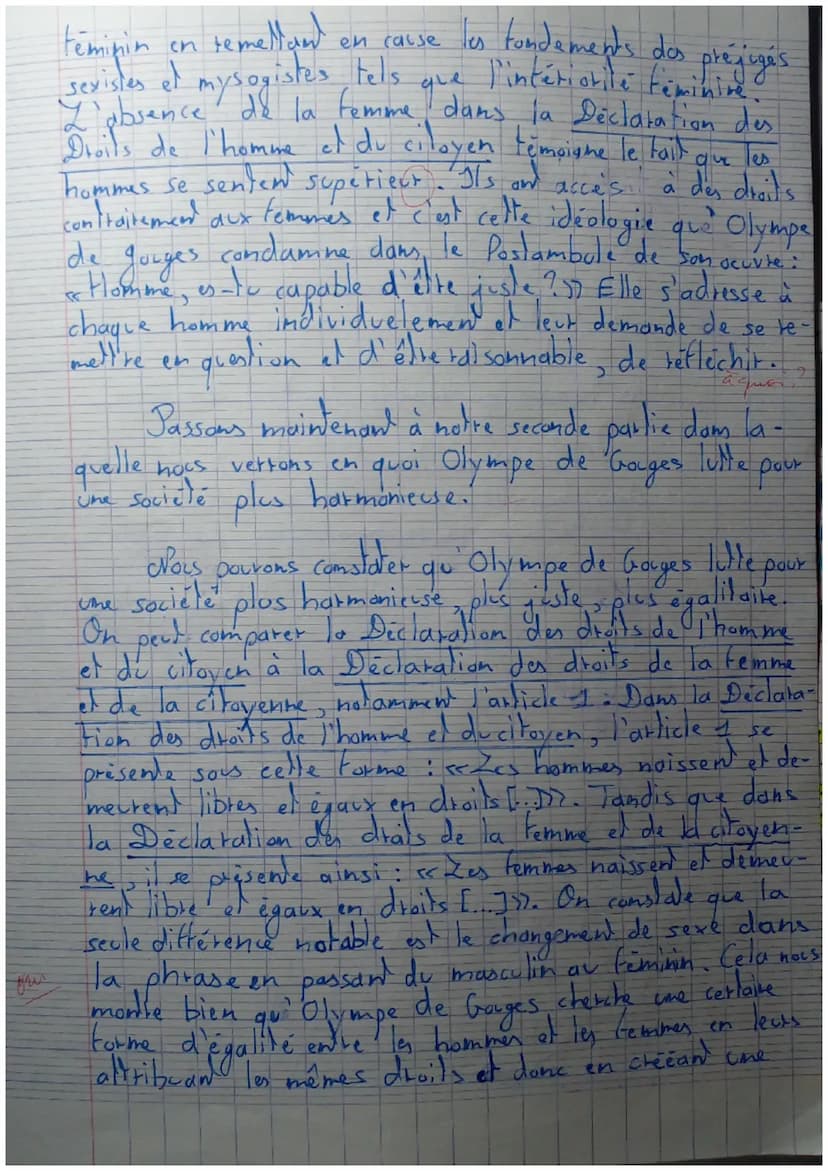 féminin en remettant en cause les fondements des préjugés
sexistes et mysogistes tels que l'infériorité féminine.
L'absence de la femme dans la Déclaration des
Droits de l'homme et du citoyen témoigne le fait que les
hommes se sentent supérieur. Ils ont accès à des droits
contrairement aux femmes et c'est cette idéologie que Olympe
de gouges condamne dans le Postambule de son oeuvre :
« Homme, es-tu capable d'être juste ? » Elle s'adresse à
chaque homme individuelement et leur demande de se re-
mettre en question et d'être raisonnable, de réfléchir.
à quoi ?
Passons maintenant à notre seconde partie dans la-
quelle nous verrons en quoi Olympe de Gouges lutte pour
une société plus harmonieuse.
Nous pouvons constater qu'Olympe de Gouges lutte pour
une société plus harmonieuse, plus juste, plus égalitaire.
On peut comparer la Déclaration des droits de l'homme
et du citoyen à la Déclaration des droits de la femme
et de la citoyenne, notamment l'article 1 : Dans la Déclara-
tion des droits de l'homme et du citoyen, l'article 1 se
présente sous cette forme : « Les hommes naissent et de-
meurent libres et égaux en droits [...] ». Tandis que dans
la Déclaration des droits de la femme et de la citoyen-
ne, il se présente ainsi : « Les femmes naissent et demeu-
rent libre et égaux en droits [...] ». On constate que la
seule différence notable est le changement de sexe dans
la phrase en passant du masculin au féminin. Cela nous
montre bien qu'Olympe de Gouges cherche une certaine
forme d'égalité entre les hommes et les femmes en leurs
attribuant les mêmes droits et donc en crééant une